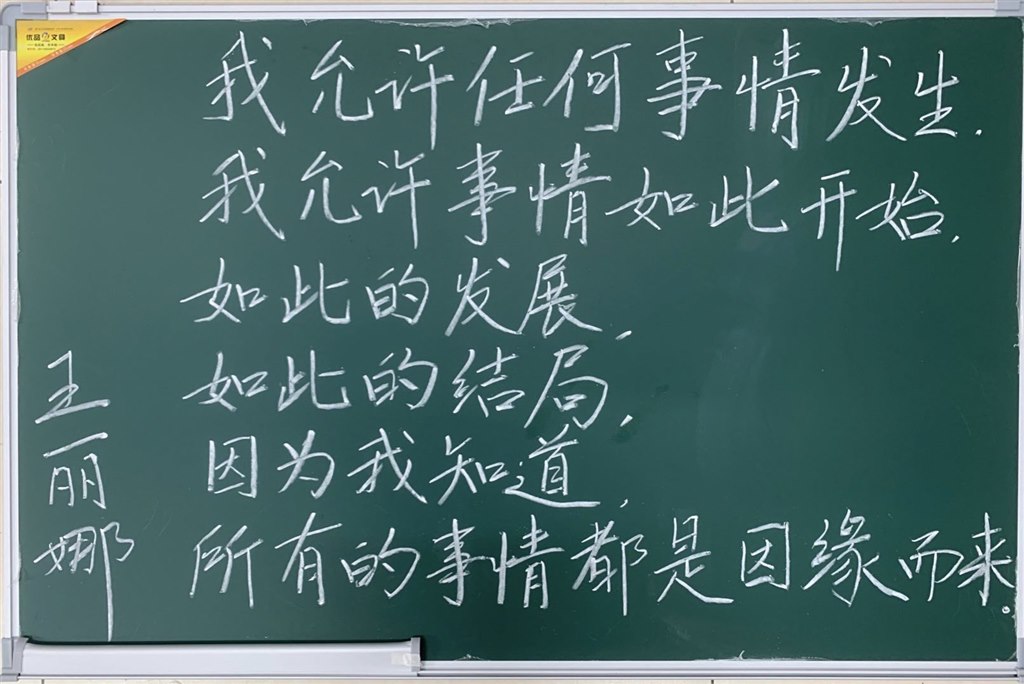 优品 文具
我允许任何事情发生.
我允许事情如此开始.
如此的发展,
如此的结局,
因为我知道,
所有的事情都是因缘而来.
王丽娜